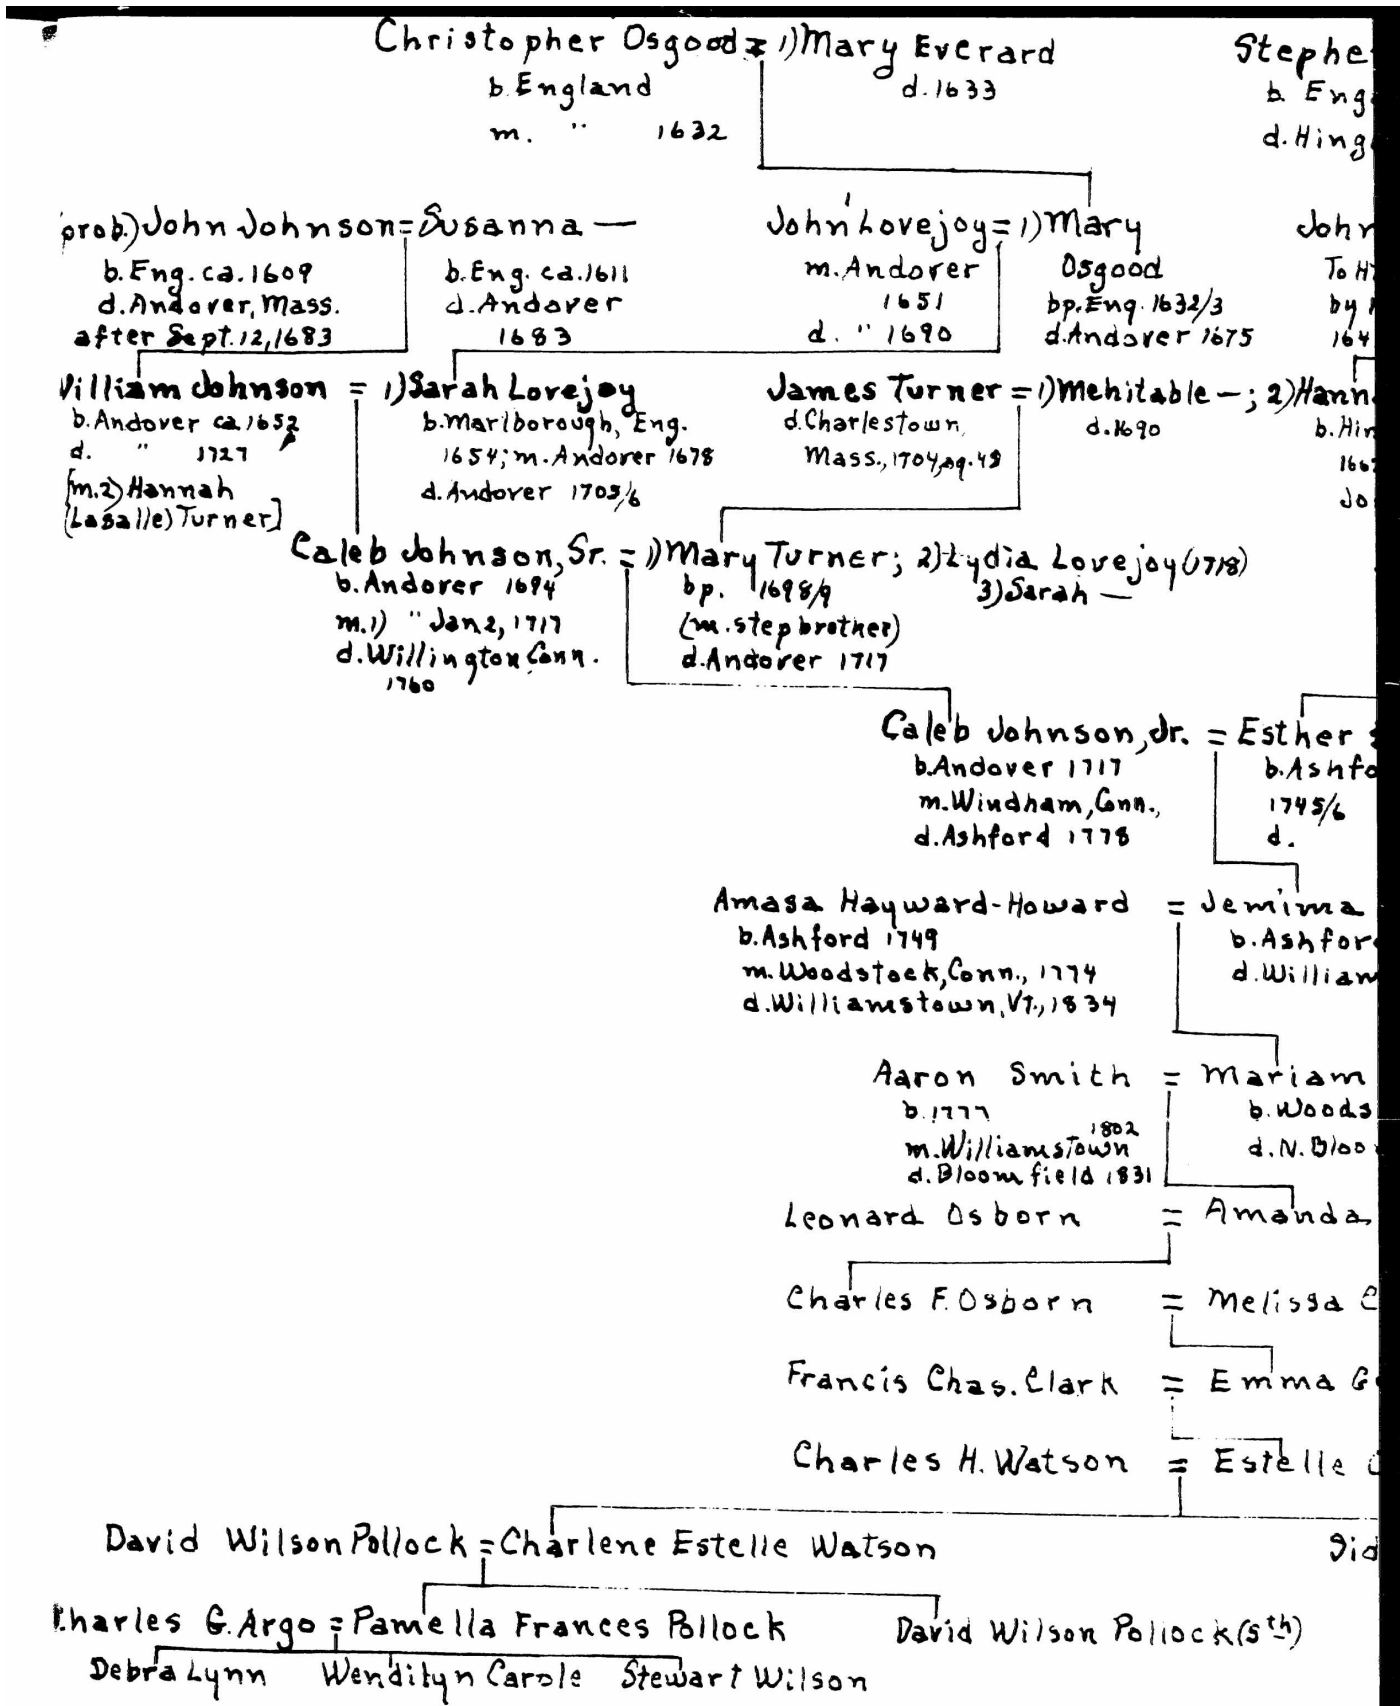 Christopher Osgood = 1) Mary Everard
b. England
d. 1633
m. " 1632
Stephe
b. Eng
d. Hing
prob.) John Johnson = Susanna —
b. Eng. ca. 1609
d. Andover, Mass.
after Sept. 12, 1683
b. Eng. ca. 1611
d. Andover
1683
John Lovejoy = 1) Mary
Osgood
m. Andover
1651
d. " 1690
bp. Eng. 1632/3
d. Andover 1675
John
To
by
164
William Johnson = 1) Sarah Lovejoy
b. Andover ca 1652
d. " 1727
[m. 2) Hannah
(Lasalle) Turner]
b. Marlborough, Eng.
1654; m. Andover 1678
d. Andover
James Turner = 1) Mehitable —; 2) Hann
d. Charlestown,
Mass., 1704,
d. 1690
b. Hin
166
Jo
Caleb Johnson, Sr. = 1) Mary Turner; 2) Lydia Lovejoy (1718)
3) Sarah —
b. Andover 1694
m. 1) " Jan 2, 1717
d. Willington Conn.
1760
bp. 1698/9
(m. stepbrother)
d. Andover 1717
Caleb Johnson, Jr. = Esther
b. Andover 1717
m. Windham, Conn.,
d. Ashford 1778
b. Ashfo
1745/6
d.
Amasa Hayward-Howard = Jemima
b. Ashford 1749
m. Woodstock, Conn., 1774
d. Williamstown, Vt., 1834
b. Ashfor
d. William
Aaron Smith = Mariam
b. 1777
m. Williamstown 1802
d. Bloomfield 1831
b. Woods
d. N. Bloo
Leonard Osborn = Amanda
Charles F. Osborn = Melissa C
Francis Chas. Clark = Emma G
Charles H. Watson = Estelle C
David Wilson Pollock = Charlene Estelle Watson
Sid
Charles G. Argo = Pamella Frances Pollock
David Wilson Pollock (5th)
Debra Lynn Wendilyn Carole Stewart Wilson